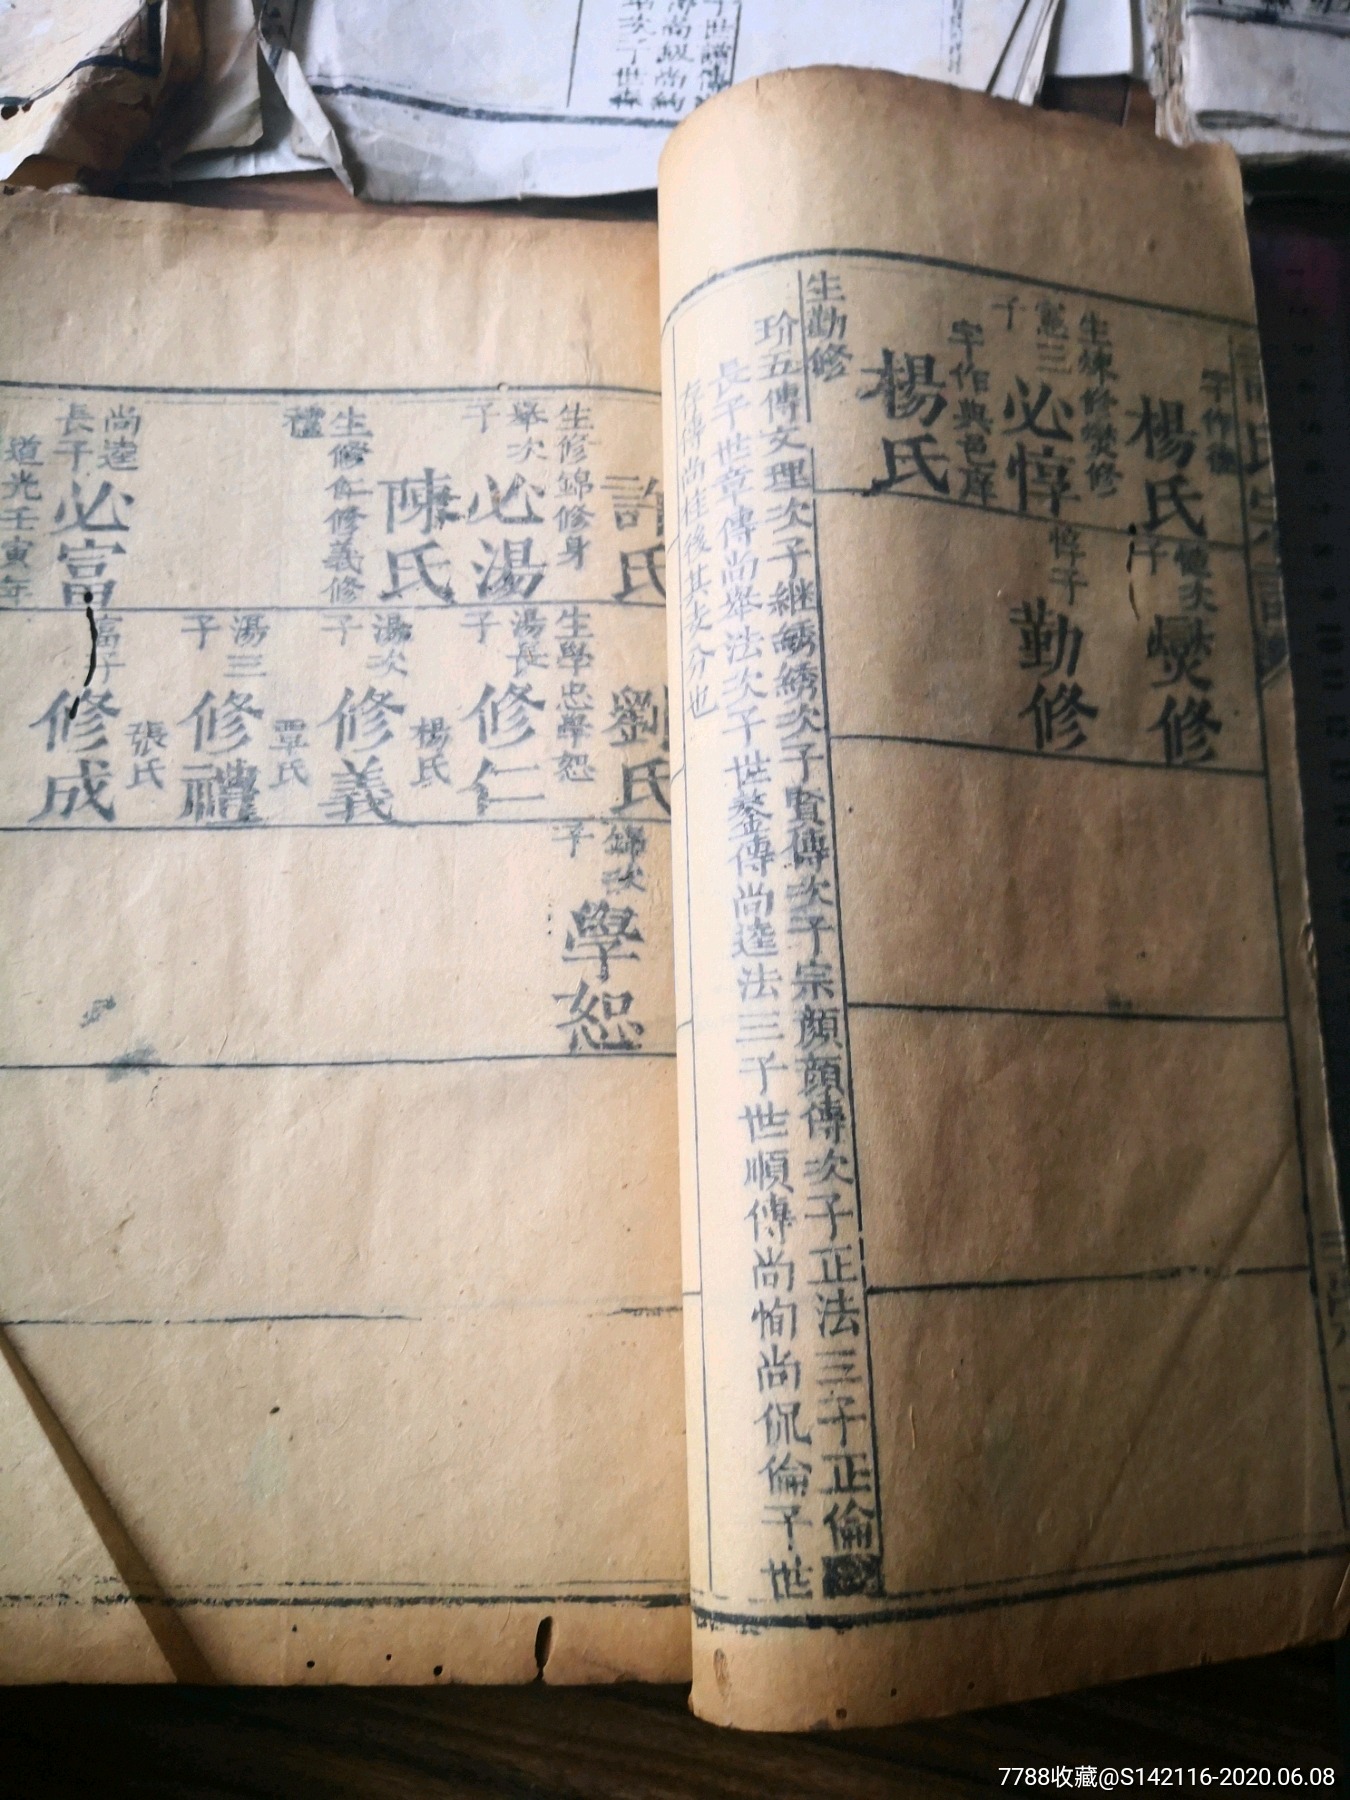 字作
楊氏
憻次子
燮修
生煉修燮修
憲三子
必惇
惇子
勤修
字作典邑庠
楊氏
生勤修
玠五傳文理次子継綉綉次子賢傳次子宗顔顔傳次子正法三子正倫
長子世章傳尚舉法次子世鎣傳尚逵法三子世順傳尚恂尚侃倫子世
存傳尚桂後其次分也
許氏
劉氏
生修錦修身
生學忠學恕
錦次子
學恕
舉次子
必湯
湯長子
修仁
陳氏
楊氏
生修仁修義修禮
湯次子
修義
覃氏
湯三子
修禮
張氏
尚逵長子
必富
富子
修成
道光壬寅年
7788收藏@S142116-2020.06.08